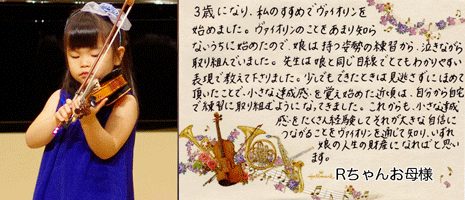 3歳になり、私のすすめでヴァイオリンを
始めました。ヴァイオリンのことをあまり知ら
ないうちに始めたので、娘は持つ姿勢の練習から、泣きながら
取り組んでいました。先生は娘と同じ目線でとてもわかりやすい
表現で教えて下さりました。少しでもできたときは見逃さずにほめて
頂いたことで、小さな達成感を覚え始めた近頃は、自分から自宅
で練習に取り組むようになってきました。これからも、小さな達成
感をたくさん経験してそれが大きな自信に
つながることをヴァイオリンを通じて知り、いずれ
娘の人生の財産になればと思い
ます。
Hallmark
Rちゃんお母様